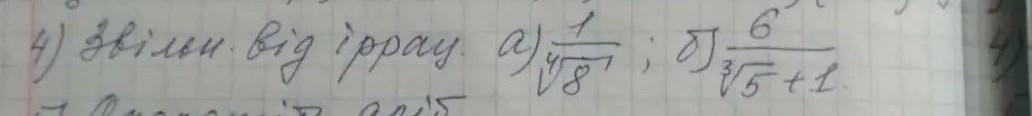 4) Звільн. від іррац. а) 1/∜8 ; б) 6/(∛5 + 1).